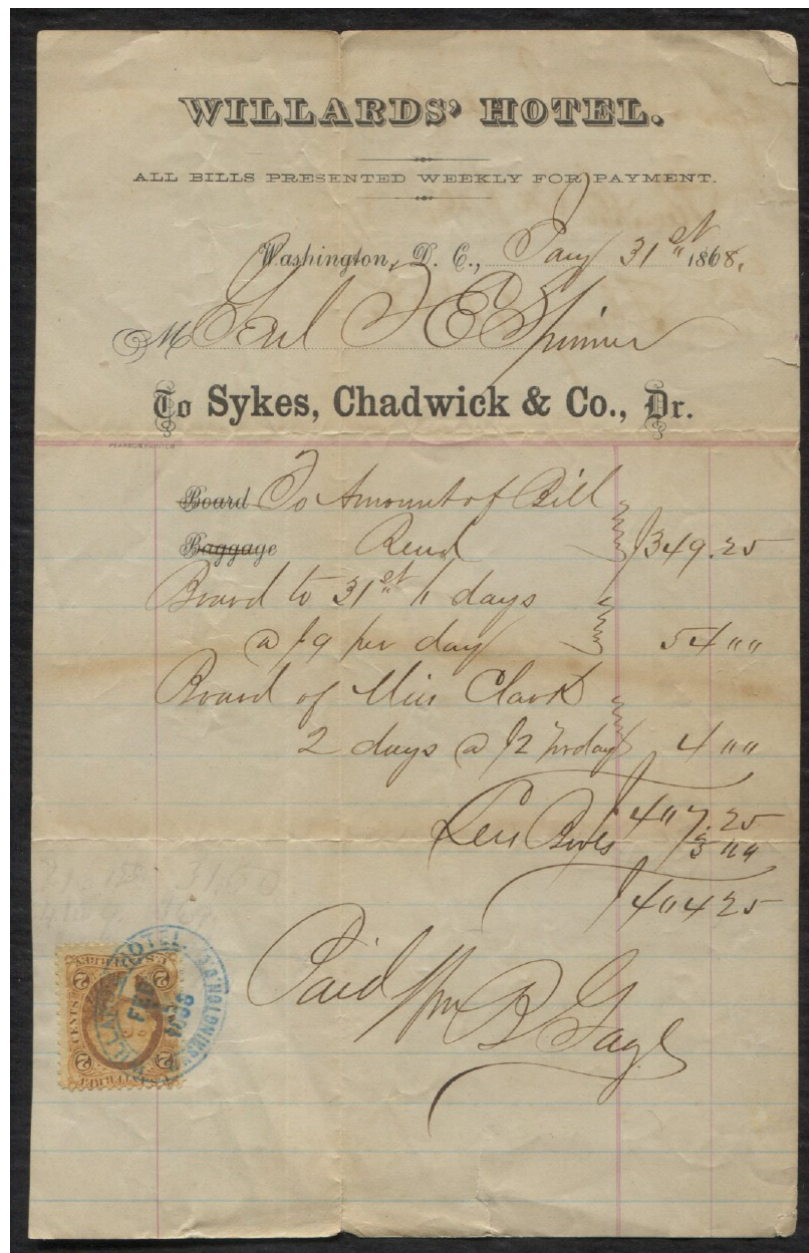 WILLARDS' HOTEL.
ALL BILLS PRESENTED WEEKLY FOR PAYMENT.
Washington, D. C., Jany 31st 1868.
M Genl F E Spinner
To Sykes, Chadwick & Co., Dr.
Board To Amount of Bill
Baggage Rend $349.25
Board to 31st 6 days
@ $9 per day 54 " "
Board of Miss Clark
2 days @ $2 per day 4 " "
$4"7.25
Less 3 " "
$4"4 25
Paid Wm B Gage
WILLARDS HOTEL WASHINGTON, D.C.
FEB
1868
U.S. INTER. REV.
2 CENTS 2